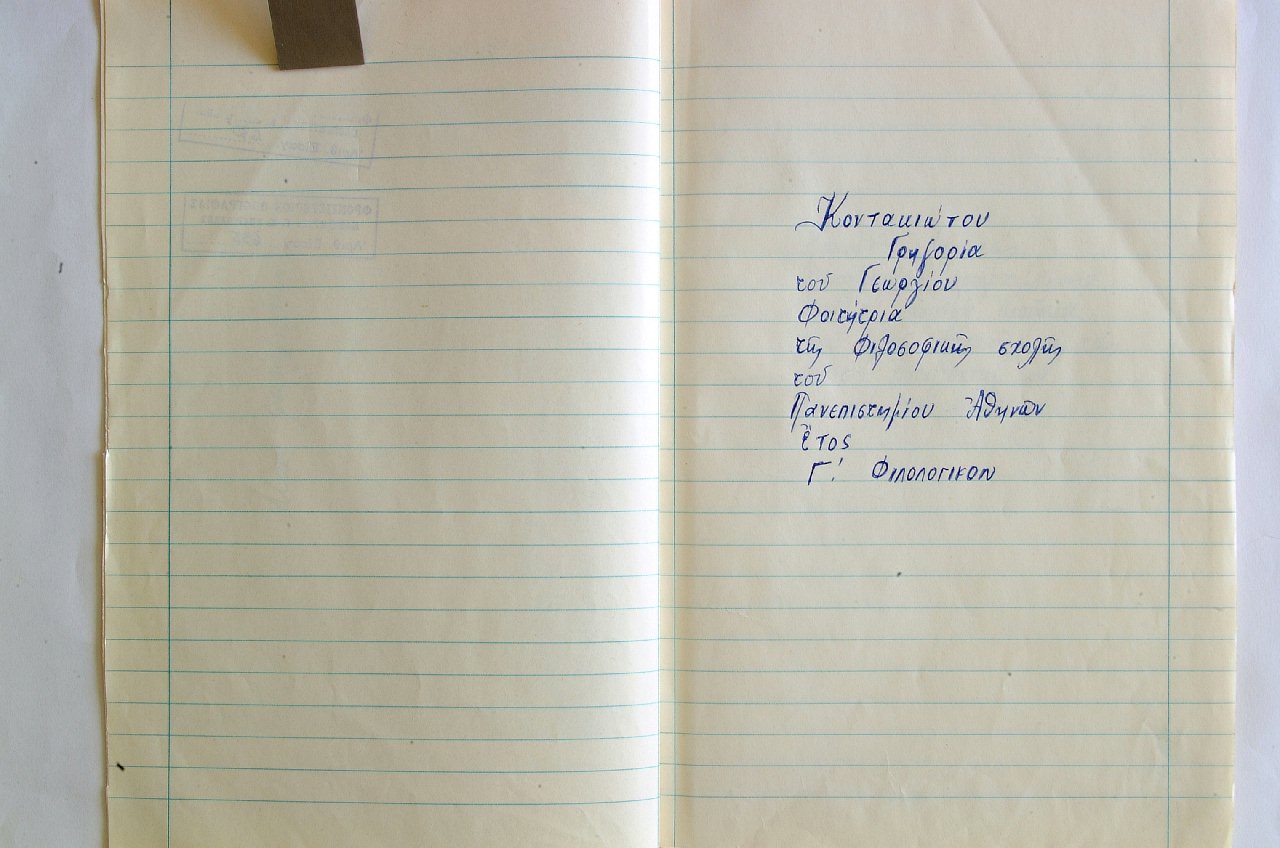 Κοντακιώτου
Γρηγορία
τοῦ Γεωργίου
Φοιτήτρια
τῆς Φιλοσοφικῆς σχολῆς
τοῦ
Πανεπιστημίου Ἀθηνῶν
Ἔτος
Γ'. Φιλολογικὸν